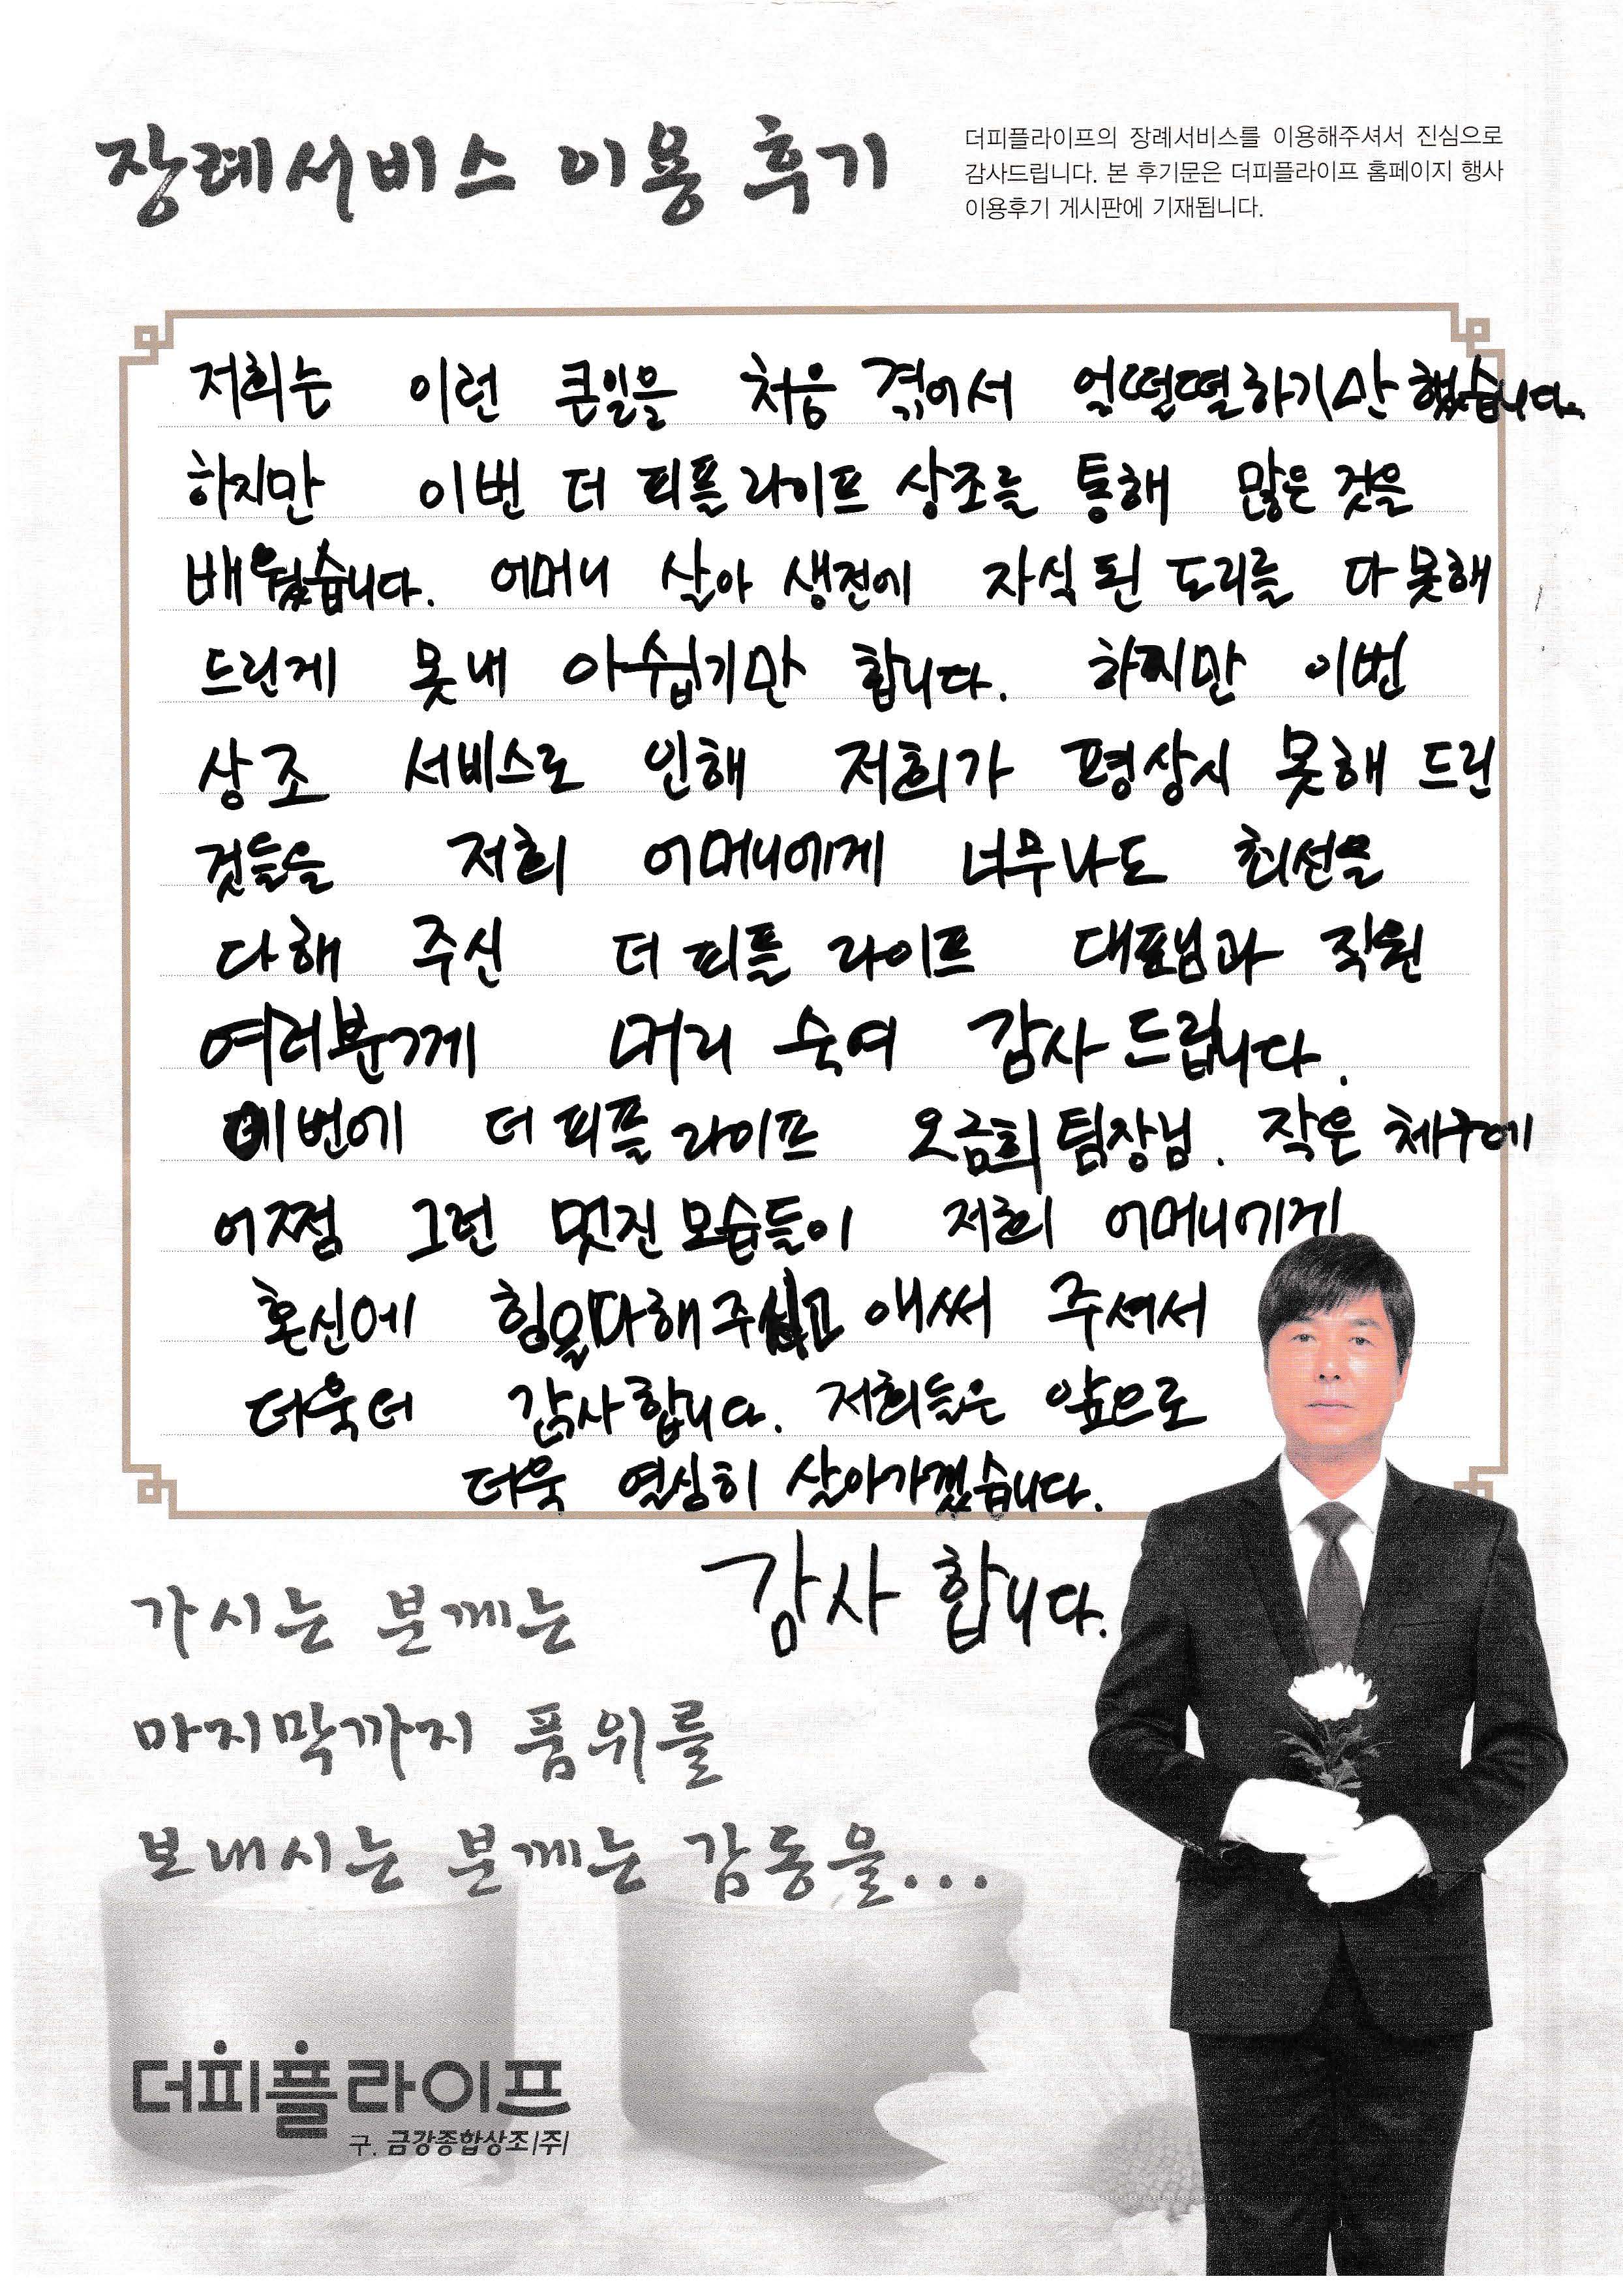 장례서비스 이용 후기
더피플라이프의 장례서비스를 이용해주셔서 진심으로
감사드립니다. 본 후기문은 더피플라이프 홈페이지 행사
이용후기 게시판에 기재됩니다.
저희는 이런 큰일을 처음 겪어서 얼떨떨하기만 했습니다.
하지만 이번 더 피플 라이프 상조를 통해 많은 것을
배웠습니다. 어머니 살아 생전에 자식 된 도리를 다 못해
드린게 못내 아쉽기만 합니다. 하지만 이번
상조 서비스로 인해 저희가 평상시 못해 드린
것들을 저희 어머니에게 너무나도 최선을
다해 주신 더 피플 라이프 대표님과 직원
여러분께 머리 숙여 감사 드립니다.
이번에 더 피플 라이프 오금희 팀장님. 작은 체구에
어쩜 그런 멋진 모습들이 저희 어머니에게
혼신에 힘을다해 애써 주셔서
더욱더 감사합니다. 저희들은 앞으로
더욱 열심히 살아가겠습니다.
감사 합니다.
가시는 분께는
마지막까지 품위를
보내시는 분께는 감동을...
더피플라이프
구. 금강종합상조|주|